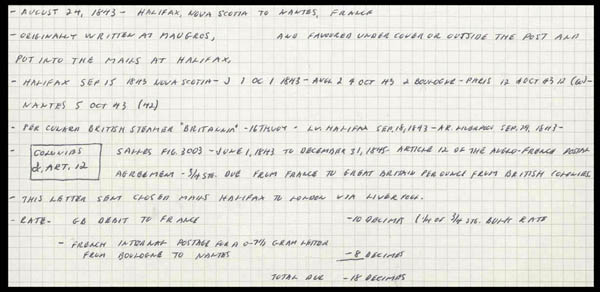 - AUGUST 24, 1843 - HALIFAX, NOVA SCOTIA TO NANTES, FRANCE
- ORIGINALLY WRITTEN AT MAUGROS, AND FAVOURED UNDER COVER OR OUTSIDE THE POST AND
PUT INTO THE MAILS AT HALIFAX.
- HALIFAX SEP 15 1843 NOVA SCOTIA - J 1 OC 1 1843 - ANGL 2 4 OCT 43 2 BOULOGNE - PARIS 12 4 OCT 43 12 (60) -
NANTES 5 OCT 43 (42)
- PER CUNARD BRITISH STEAMER "BRITANNIA" - 16TH VOY - LV. HALIFAX SEP. 18, 1843 - AR. LIVERPOOL SEP. 29, 1843 -
- COLONIES
&. ART. 12
SALLES FIG. 3003 - JUNE 1, 1843 TO DECEMBER 31, 1845. ARTICLE 12 OF THE ANGLO-FRENCH POSTAL
AGREEMENT - 3/4 STG. DUE FROM FRANCE TO GREAT BRITAIN PER OUNCE FROM BRITISH COLONIES.
- THIS LETTER SENT CLOSED MAILS HALIFAX TO LONDON VIA LIVERPOOL.
- RATE - GB DEBIT TO FRANCE - 10 DECIMES (1/4 OF 3/4 STG. BULK RATE
- FRENCH INTERNAL POSTAGE FOR A 0-7 1/2 GRAM LETTER
FROM BOULOGNE TO NANTES - 8 DECIMES
TOTAL DUE - 18 DECIMES